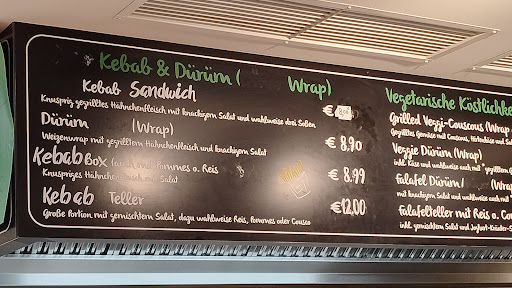 Kebab & Dürüm ( Wrap)
Kebab Sandwich
Knusprig gegrilltes Hähnchenfleisch mit knackigem Salat und wahlweise drei Soßen
€
Dürüm (Wrap)
€ 8.90
Weizenwrap mit gegrilltem Hähnchenfleisch und knackigem Salat
Kebab Box Pommes o. Reis
€ 8.99
Knuspriges Salat
Kebab Teller
€ 12,00
Große Portion mit gemischtem Salat, dazu wahlweise Reis, Pommes oder Cousco
Vegetarische Köstlichke
Grilled Veggi-Couscous (Wrap
Gegrilltes Gemüse mit Couscous,
Veggie Dürüm (Wrap)
inkl. Käse und wahlweise auch mit
Falafel Dürüm/ (Wrap)
mit knackigem Salat und wahlweise auch mit
Falafelteller mit Reis o. Co
inkl. gemischtem Salat und Joghurt-Kräuter-S